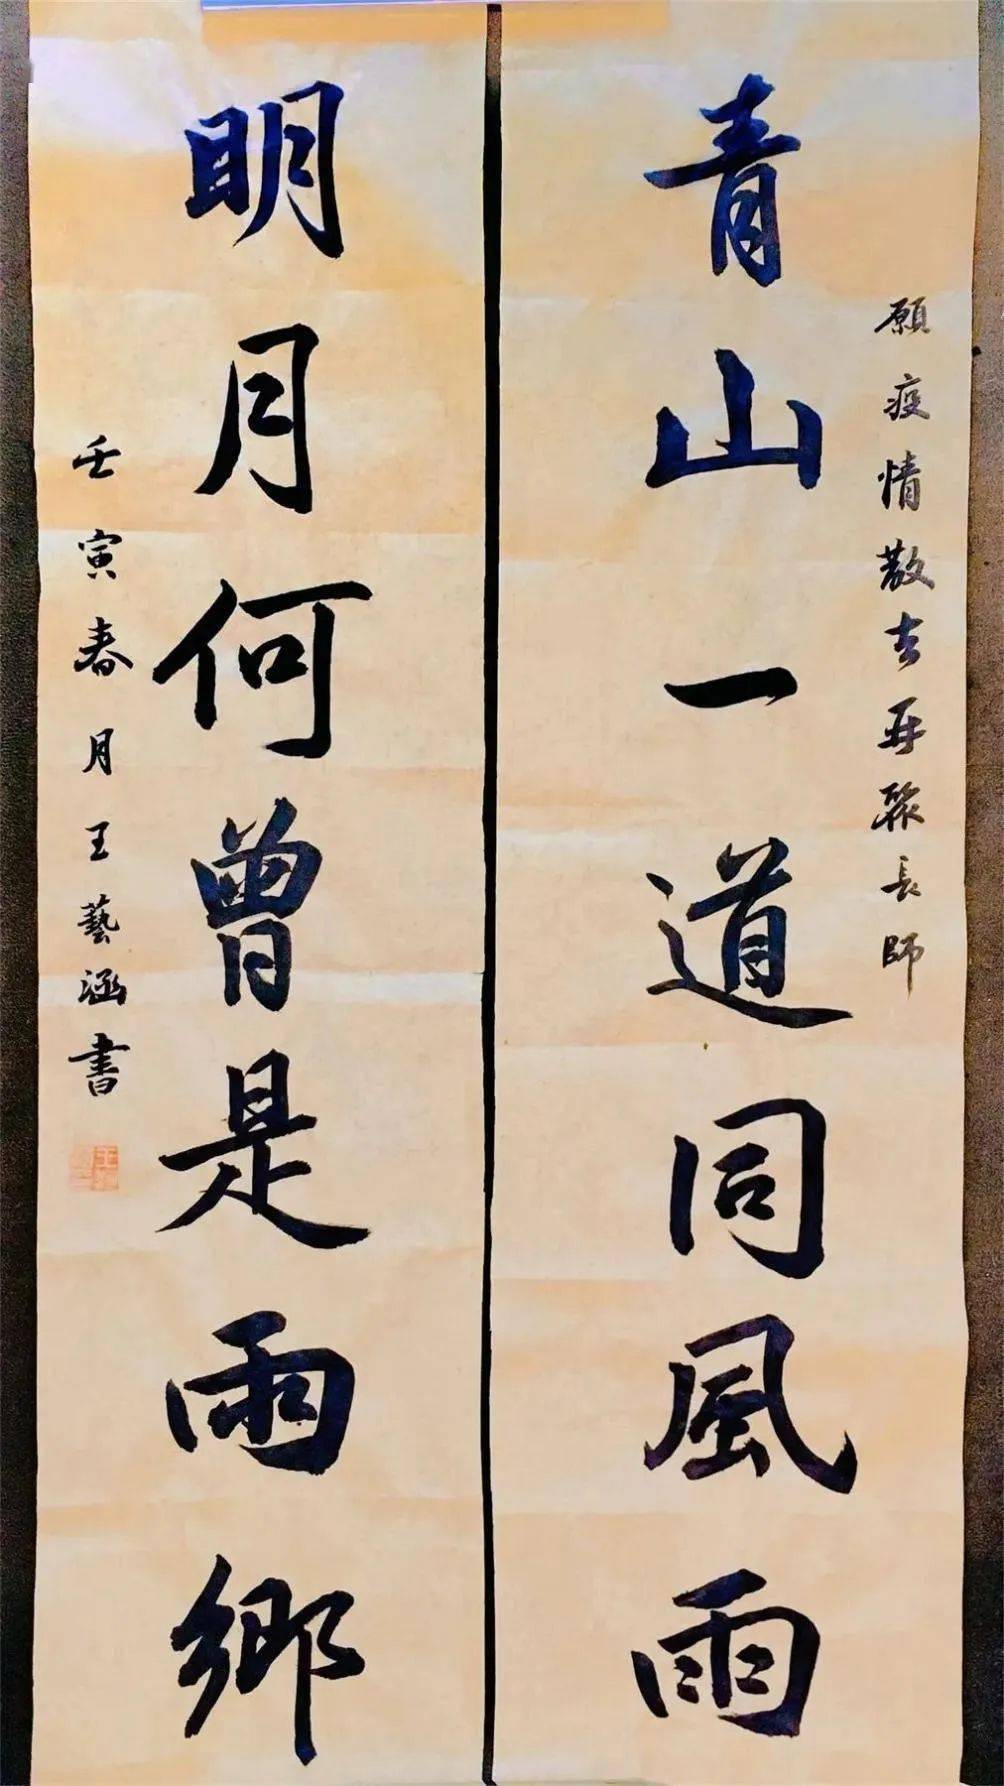 願疫情散去再聚長師
青山一道同風雨
明月何曾是雨鄉
壬寅春月王藝涵書